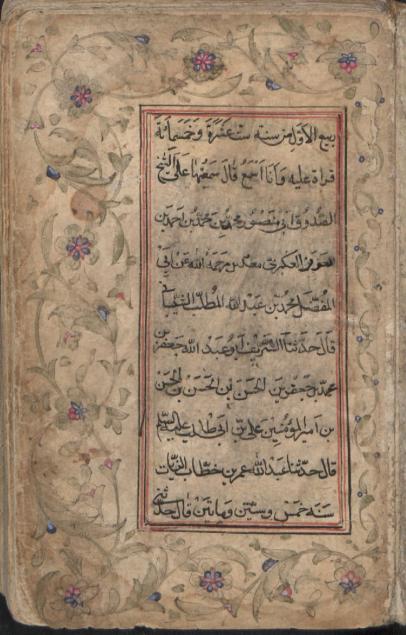 ربيع الاول من سنة ست عشرة وخمسمائة
قراءة عليه وانا اسمع قال سمعتها على الشيخ
الصدوق ابي منصور محمد بن محمد بن احمد بن
العكبري المعدل رحمه الله عن ابي
المفضل محمد بن عبد الله المطلب الشيباني
قال حدثنا الشريف ابو عبد الله جعفر بن
محمد بن جعفر بن الحسن بن الحسن بن الحسن
بن امير المؤمنين علي بن ابي طالب عليه السلم
قال حدثنا عبد الله عمر بن خطاب الزيات
سنة خمس وستين ومائتين قال حدثني